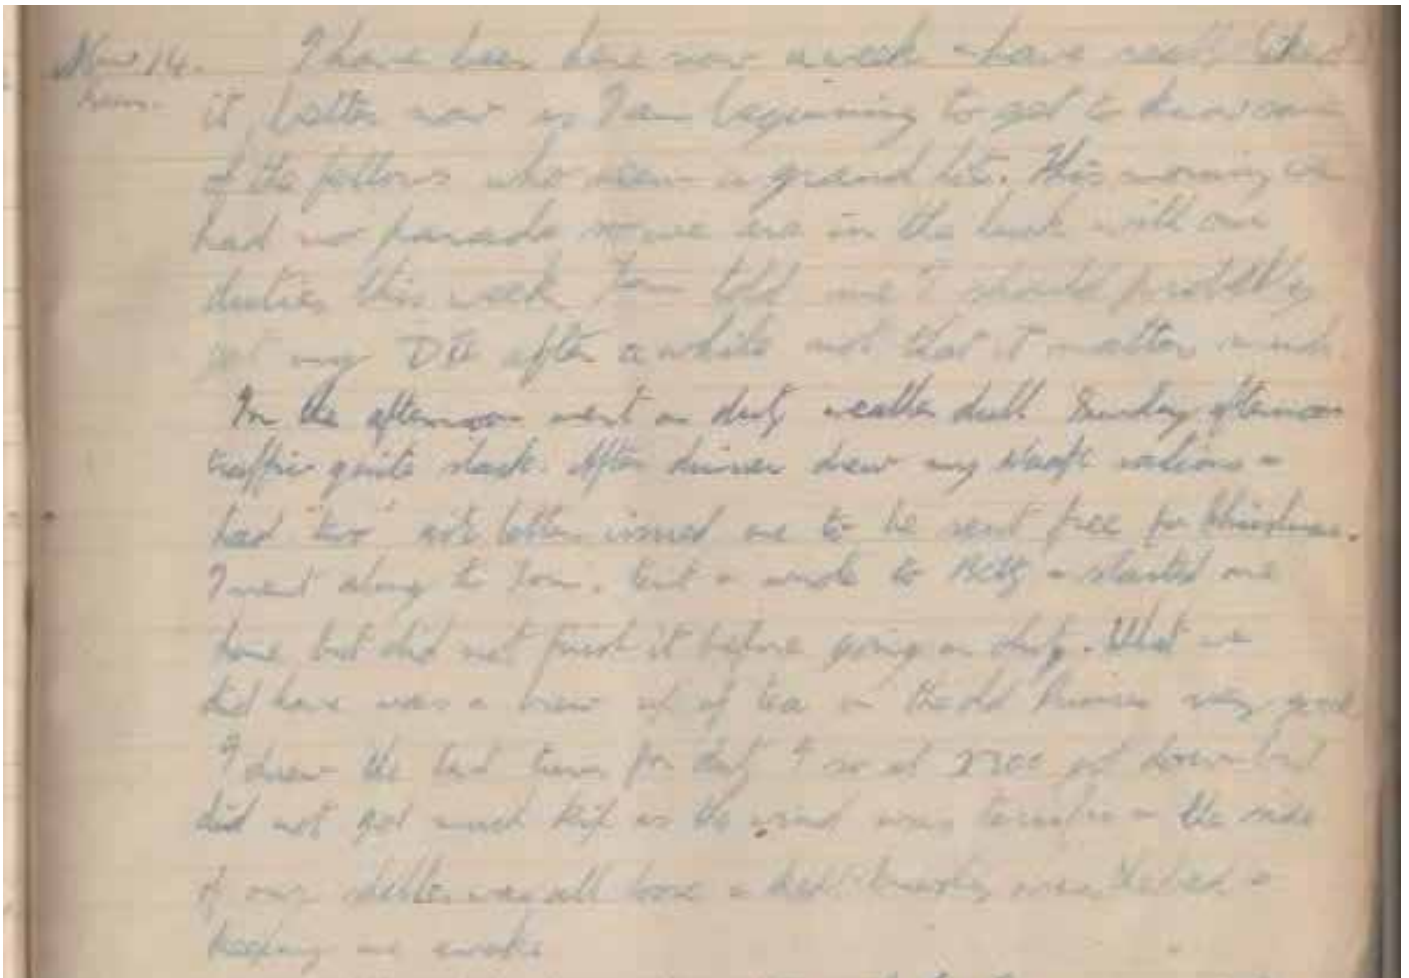 Nov 14. I have been here now a week & have really liked
it, better now as I am beginning to get to know some
of the fellows who seem a grand lot. This morning we
had no parade so we are in the luck with our
duties this week. Tom told me I should probably
get my D after a while not that it matters much.
In the afternoon went on duty weather dull Sunday afternoon
traffic quite slack. After dinner drew my Naafi rations &
had two letters issued me to be sent free for Christmas.
I went along to Tom. tent & wrote to & started one
home, but did not finish it before going on duty. What we
did have was a brew up of tea on the old Primus very good
I drew the last turn for duty & so at 2200 got down but
did not get much kip as the wind was terrific & the side
of our shelter was all loose & kept over the bed &
keeping me awake